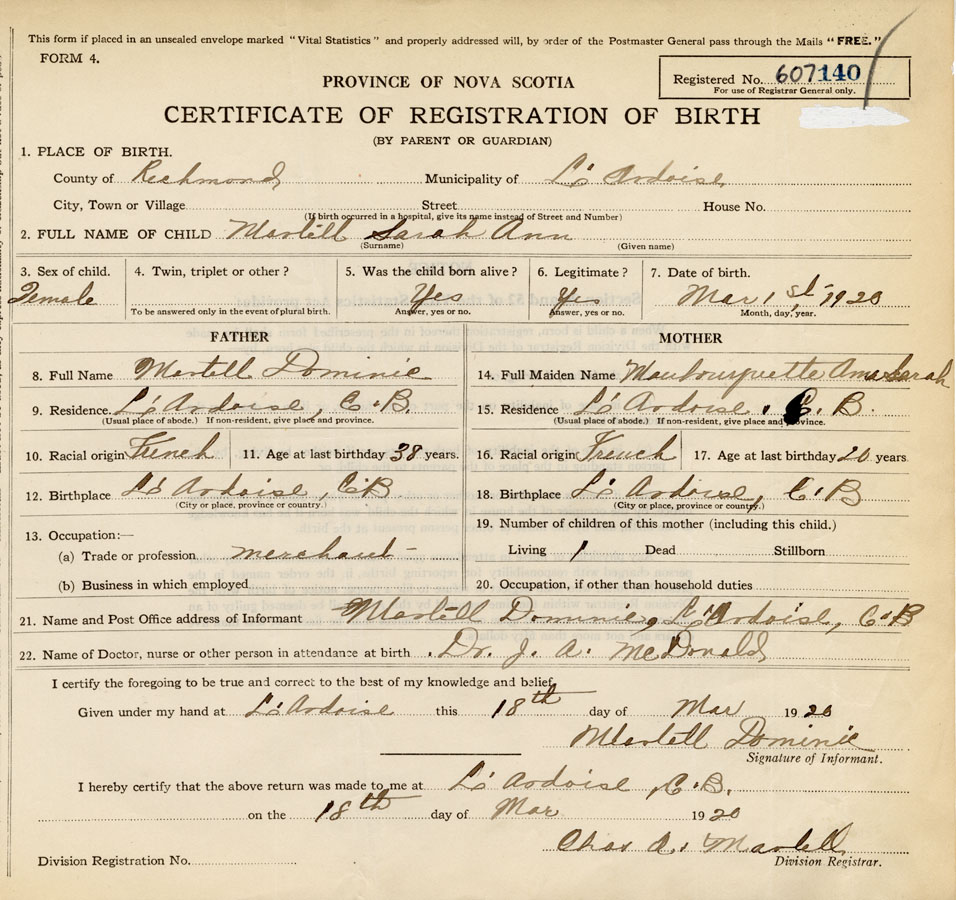 This form if placed in an unsealed envelope marked "Vital Statistics" and properly addressed will, by order of the Postmaster General pass through the Mails "FREE."
FORM 4.
Registered No. 607140
For use of Registrar General only.
PROVINCE OF NOVA SCOTIA
CERTIFICATE OF REGISTRATION OF BIRTH
(BY PARENT OR GUARDIAN)
1. PLACE OF BIRTH.
County of Richmond Municipality of L'Ardoise
City, Town or Village Street House No.
(If birth occurred in a hospital, give its name instead of Street and Number)
2. FULL NAME OF CHILD Martell Sarah Ann
(Surname) (Given name)
3. Sex of child. 4. Twin, triplet or other? 5. Was the child born alive? 6. Legitimate? 7. Date of birth.
Female Yes Yes Mar 1st, 1920
To be answered only in the event of plural birth. Answer, yes or no. Answer, yes or no. Month, day, year.
FATHER MOTHER
8. Full Name Martell Dominic 14. Full Maiden Name Maubourquette Ann Sarah
9. Residence. L'Ardoise, C.B. 15. Residence L'Ardoise, C.B.
(Usual place of abode.) If non-resident, give place and province. (Usual place of abode.) If non-resident, give place and province.
10. Racial origin French 11. Age at last birthday 38 years. 16. Racial origin French 17. Age at last birthday 20 years.
12. Birthplace L'Ardoise, C.B 18. Birthplace L'Ardoise, C.B
(City or place, province or country.) (City or place, province or country.)
13. Occupation:— 19. Number of children of this mother (including this child.)
(a) Trade or profession merchant - Living 1 Dead Stillborn
(b) Business in which employed 20. Occupation, if other than household duties
21. Name and Post Office address of Informant Martell Dominic, L'Ardoise, C.B
22. Name of Doctor, nurse or other person in attendance at birth Dr. J. A. McDonald
I certify the foregoing to be true and correct to the best of my knowledge and belief.
Given under my hand at L'Ardoise this 18th day of Mar 1920
Martell Dominic
Signature of Informant.
I hereby certify that the above return was made to me at L'Ardoise, C.B.
on the 18th day of Mar 1920
Chas A. Martell
Division Registration No. Division Registrar.